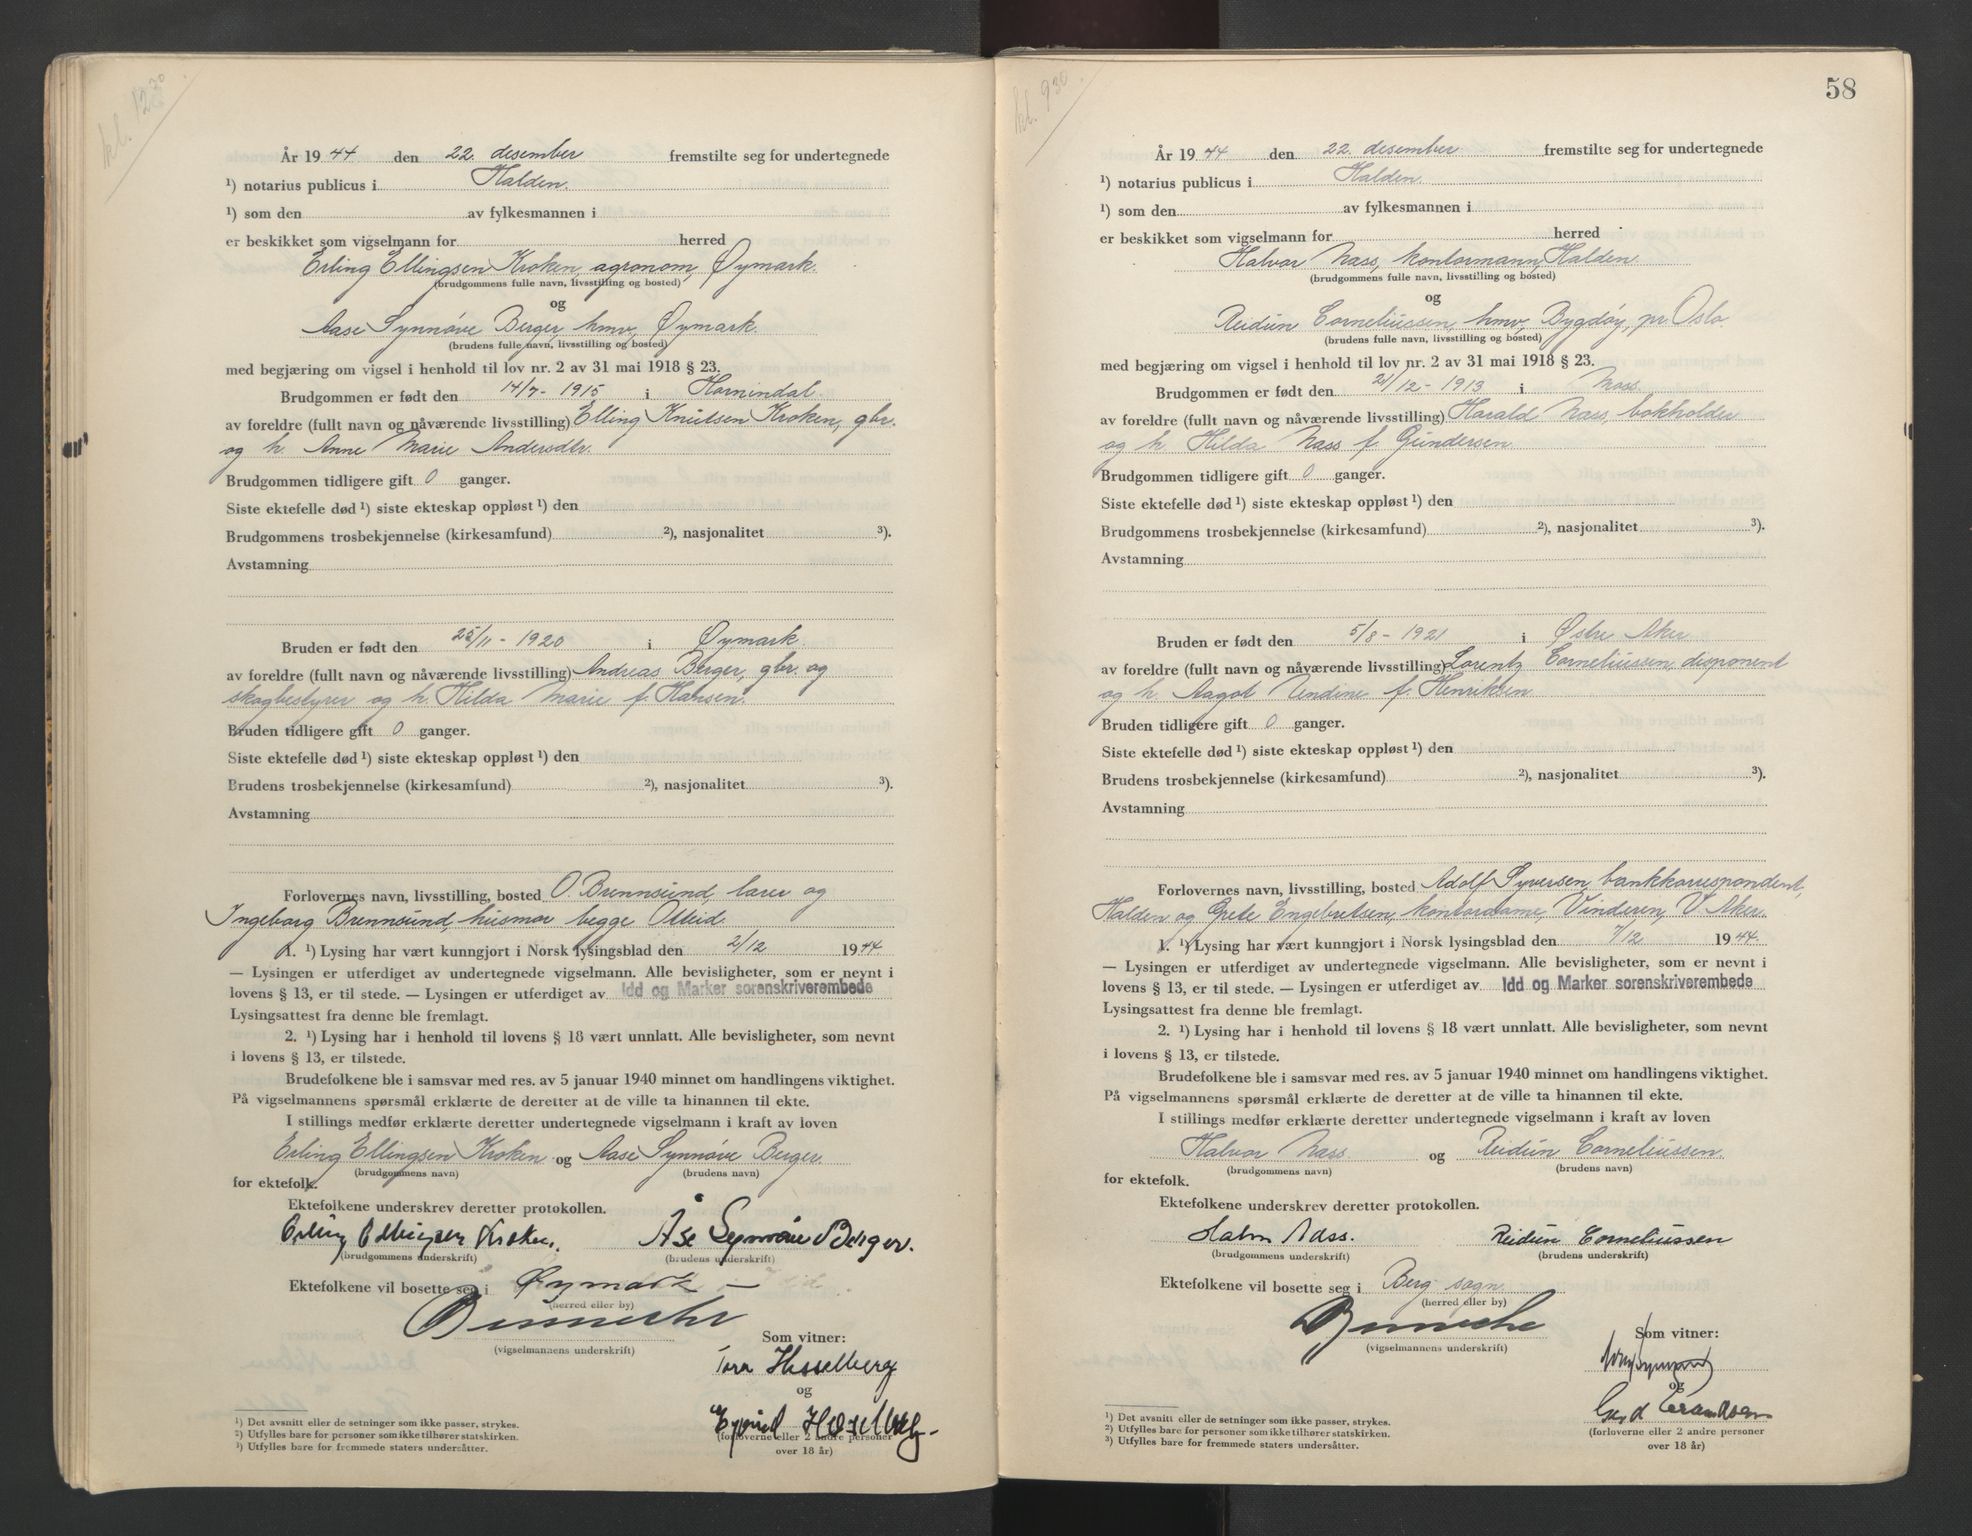 kl. 12³⁰
År 1944 den 22. desember fremstilte seg for undertegnede
¹) notarius publicus i Halden.
¹) som den av fylkesmannen i
er beskikket som vigselmann for herred
Erling Ellingsen Kroken, agronom, Øymark.
(brudgommens fulle navn, livsstilling og bosted)
og
Aase Synnøve Berger, hmv, Øymark.
(brudens fulle navn, livsstilling og bosted)
med begjæring om vigsel i henhold til lov nr. 2 av 31 mai 1918 § 23.
Brudgommen er født den 14/7 - 1915 i Hornindal
av foreldre (fullt navn og nåværende livsstilling) Elling Knutsen Kroken, gbr.
og h. Anne Marie Andersdtr.
Brudgommen tidligere gift 0 ganger.
Siste ektefelle død ¹) siste ekteskap oppløst ¹) den
Brudgommens trosbekjennelse (kirkesamfund) ²), nasjonalitet ³).
Avstamning
Bruden er født den 25/11 - 1920 i Øymark
av foreldre (fullt navn og nåværende livsstilling) Andreas Berger, gbr. og
skogbestyrer og h. Hilda Marie f. Hansen.
Bruden tidligere gift 0 ganger.
Siste ektefelle død ¹) siste ekteskap oppløst ¹) den
Brudens trosbekjennelse (kirkesamfund) ²), nasjonalitet ³).
Avstamning
Forlovernes navn, livsstilling, bosted O. Brennsund, lærer og
Ingeborg Brennsund, husmor begge Otteid.
1. ¹) Lysing har vært kunngjort i Norsk lysingsblad den 2/12 1944
— Lysingen er utferdiget av undertegnede vigselmann. Alle bevisligheter, som er nevnt i
lovens § 13, er til stede. — Lysingen er utferdiget av Idd og Marker sorenskriverembede
Lysingsattest fra denne ble fremlagt.
2. ¹) Lysing har i henhold til lovens § 18 vært unnlatt. Alle bevisligheter, som nevnt
i lovens § 13, er tilstede.
Brudefolkene ble i samsvar med res. av 5 januar 1940 minnet om handlingens viktighet.
På vigselmannens spørsmål erklærte de deretter at de ville ta hinannen til ekte.
I stillings medfør erklærte deretter undertegnede vigselmann i kraft av loven
Erling Ellingsen Kroken og Aase Synnøve Berger.
(brudgommens navn) (brudens navn)
for ektefolk.
Ektefolkene underskrev deretter protokollen.
Erling Ellingsen Kroken. Åse Synnøve Berger.
(brudgommens underskrift) (brudens underskrift)
Ektefolkene vil bosette seg i Øymark —
(herred eller by)
(vigselmannens underskrift)
Som vitner:
Tora Hesselberg
og
Eyvind Hesselberg.
(forloverne eller 2 andre personer
over 18 år)
¹) Det avsnitt eller de setninger som ikke passer, strykes.
²) Utfylles bare for personer som ikke tilhører statskirken.
³) Utfylles bare for fremmede staters undersåtter.
58
kl. 9³⁰
År 1944 den 22. desember fremstilte seg for undertegnede
¹) notarius publicus i Halden.
¹) som den av fylkesmannen i
er beskikket som vigselmann for herred
Halvor Nass, kontormann, Halden
(brudgommens fulle navn, livsstilling og bosted)
og
Reidun Corneliussen, hmv, Bygdøy, pr. Oslo.
(brudens fulle navn, livsstilling og bosted)
med begjæring om vigsel i henhold til lov nr. 2 av 31 mai 1918 § 23.
Brudgommen er født den 21/12 - 1913 i Moss.
av foreldre (fullt navn og nåværende livsstilling) Harald Nass, bokholder
og h. Hilda Nass f. Gundersen
Brudgommen tidligere gift 0 ganger.
Siste ektefelle død ¹) siste ekteskap oppløst ¹) den
Brudgommens trosbekjennelse (kirkesamfund) ²), nasjonalitet ³).
Avstamning
Bruden er født den 5/8 - 1921 i Østre Aker
av foreldre (fullt navn og nåværende livsstilling) Lorentz Corneliussen, disponent
og h. Aagot Undine f. Henriksen
Bruden tidligere gift 0 ganger.
Siste ektefelle død ¹) siste ekteskap oppløst ¹) den
Brudens trosbekjennelse (kirkesamfund) ²), nasjonalitet ³).
Avstamning
Forlovernes navn, livsstilling, bosted Adolf Syversen, bankkorrespondent,
Halden og Grete Engebretsen, kontordame, Vinderen, V. Aker.
1. ¹) Lysing har vært kunngjort i Norsk lysingsblad den 7/12 1944.
— Lysingen er utferdiget av undertegnede vigselmann. Alle bevisligheter, som er nevnt i
lovens § 13, er til stede. — Lysingen er utferdiget av Idd og Marker sorenskriverembede
Lysingsattest fra denne ble fremlagt.
2. ¹) Lysing har i henhold til lovens § 18 vært unnlatt. Alle bevisligheter, som nevnt
i lovens § 13, er tilstede.
Brudefolkene ble i samsvar med res. av 5 januar 1940 minnet om handlingens viktighet.
På vigselmannens spørsmål erklærte de deretter at de ville ta hinannen til ekte.
I stillings medfør erklærte deretter undertegnede vigselmann i kraft av loven
Halvor Nass og Reidun Corneliussen.
(brudgommens navn) (brudens navn)
for ektefolk.
Ektefolkene underskrev deretter protokollen.
Halvor Nass. Reidun Corneliussen
(brudgommens underskrift) (brudens underskrift)
Ektefolkene vil bosette seg i Berg sogn
(herred eller by)
(vigselmannens underskrift)
Som vitner:
og
Gerd
(forloverne eller 2 andre personer
over 18 år)
¹) Det avsnitt eller de setninger som ikke passer, strykes.
²) Utfylles bare for personer som ikke tilhører statskirken.
³) Utfylles bare for fremmede staters undersåtter.